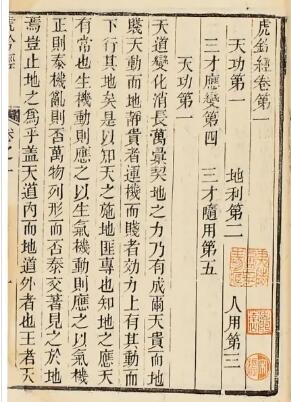 虎鈐經卷第一
天功第一 地利第二 人用第三
三才應變第四 三才隨用第五
天功第一
天道變化消長萬彙契地之力乃有成爾天貴而地
賤天動而地靜貴者運機而賤者效力上有其動而
下行其地矣是以知天之施地匪專也知地之應天
有常也生機動則應之以生氣機動則應之以氣機
正則泰機亂則否萬物列形而否泰交著見之於地
焉豈止地之為乎蓋天道內而地道外者也王者天
虎鈐經 卷之一 一